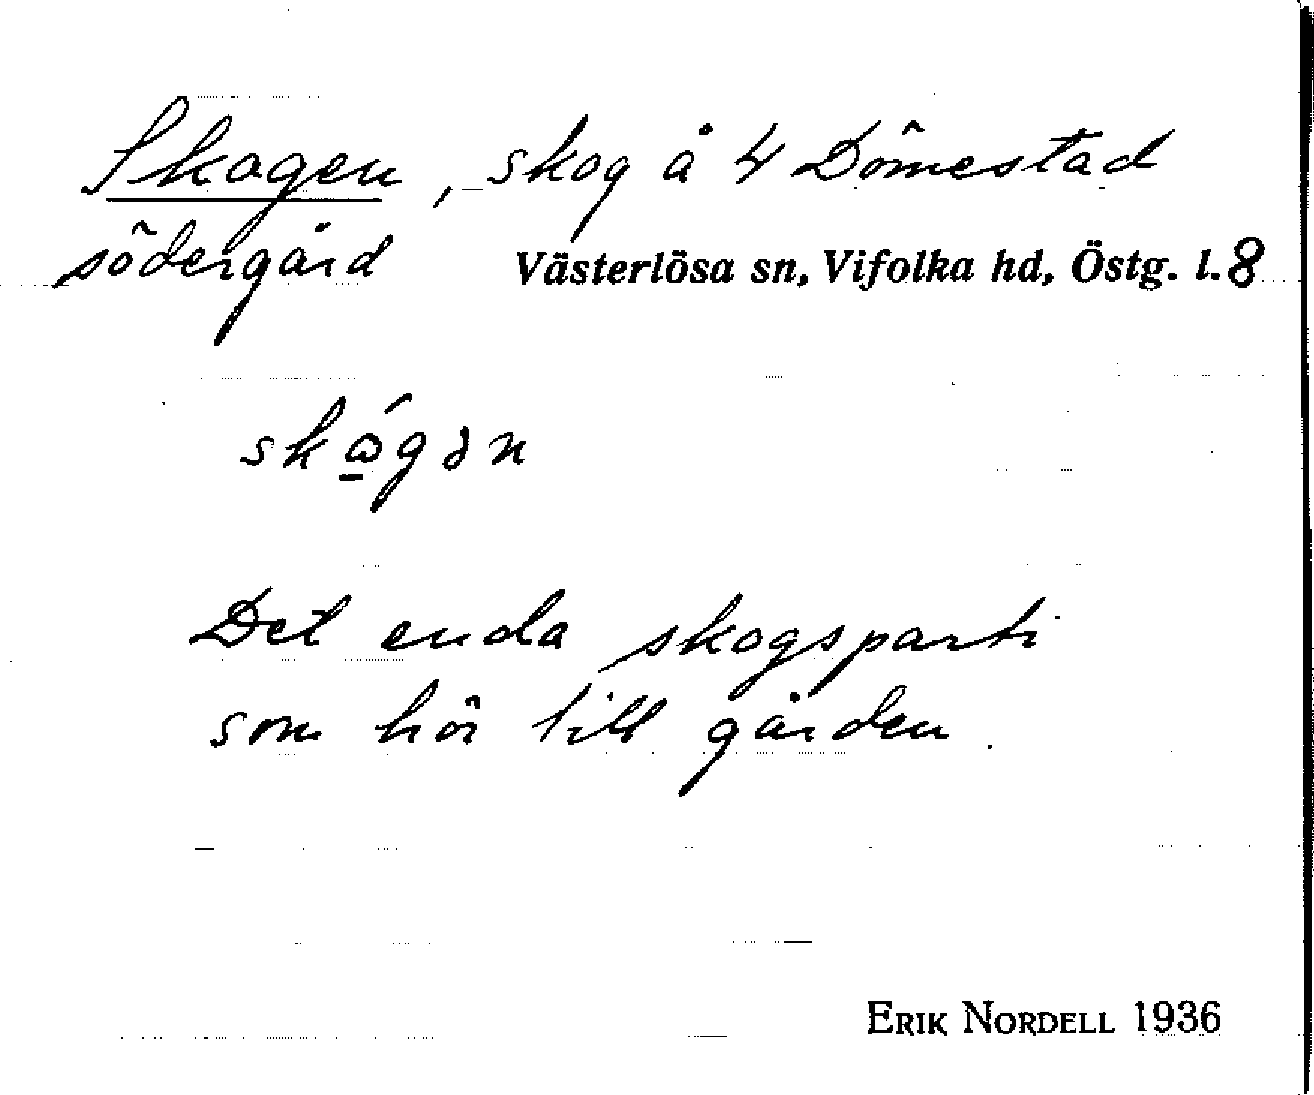 Skogen, skog å 4 Dömestad
södergård Västerlösa sn, Vifolka hd, Östg. l. 8
skώ̲gən
Det enda skogsparti
som hör till gården.
ERIK NORDELL 1936